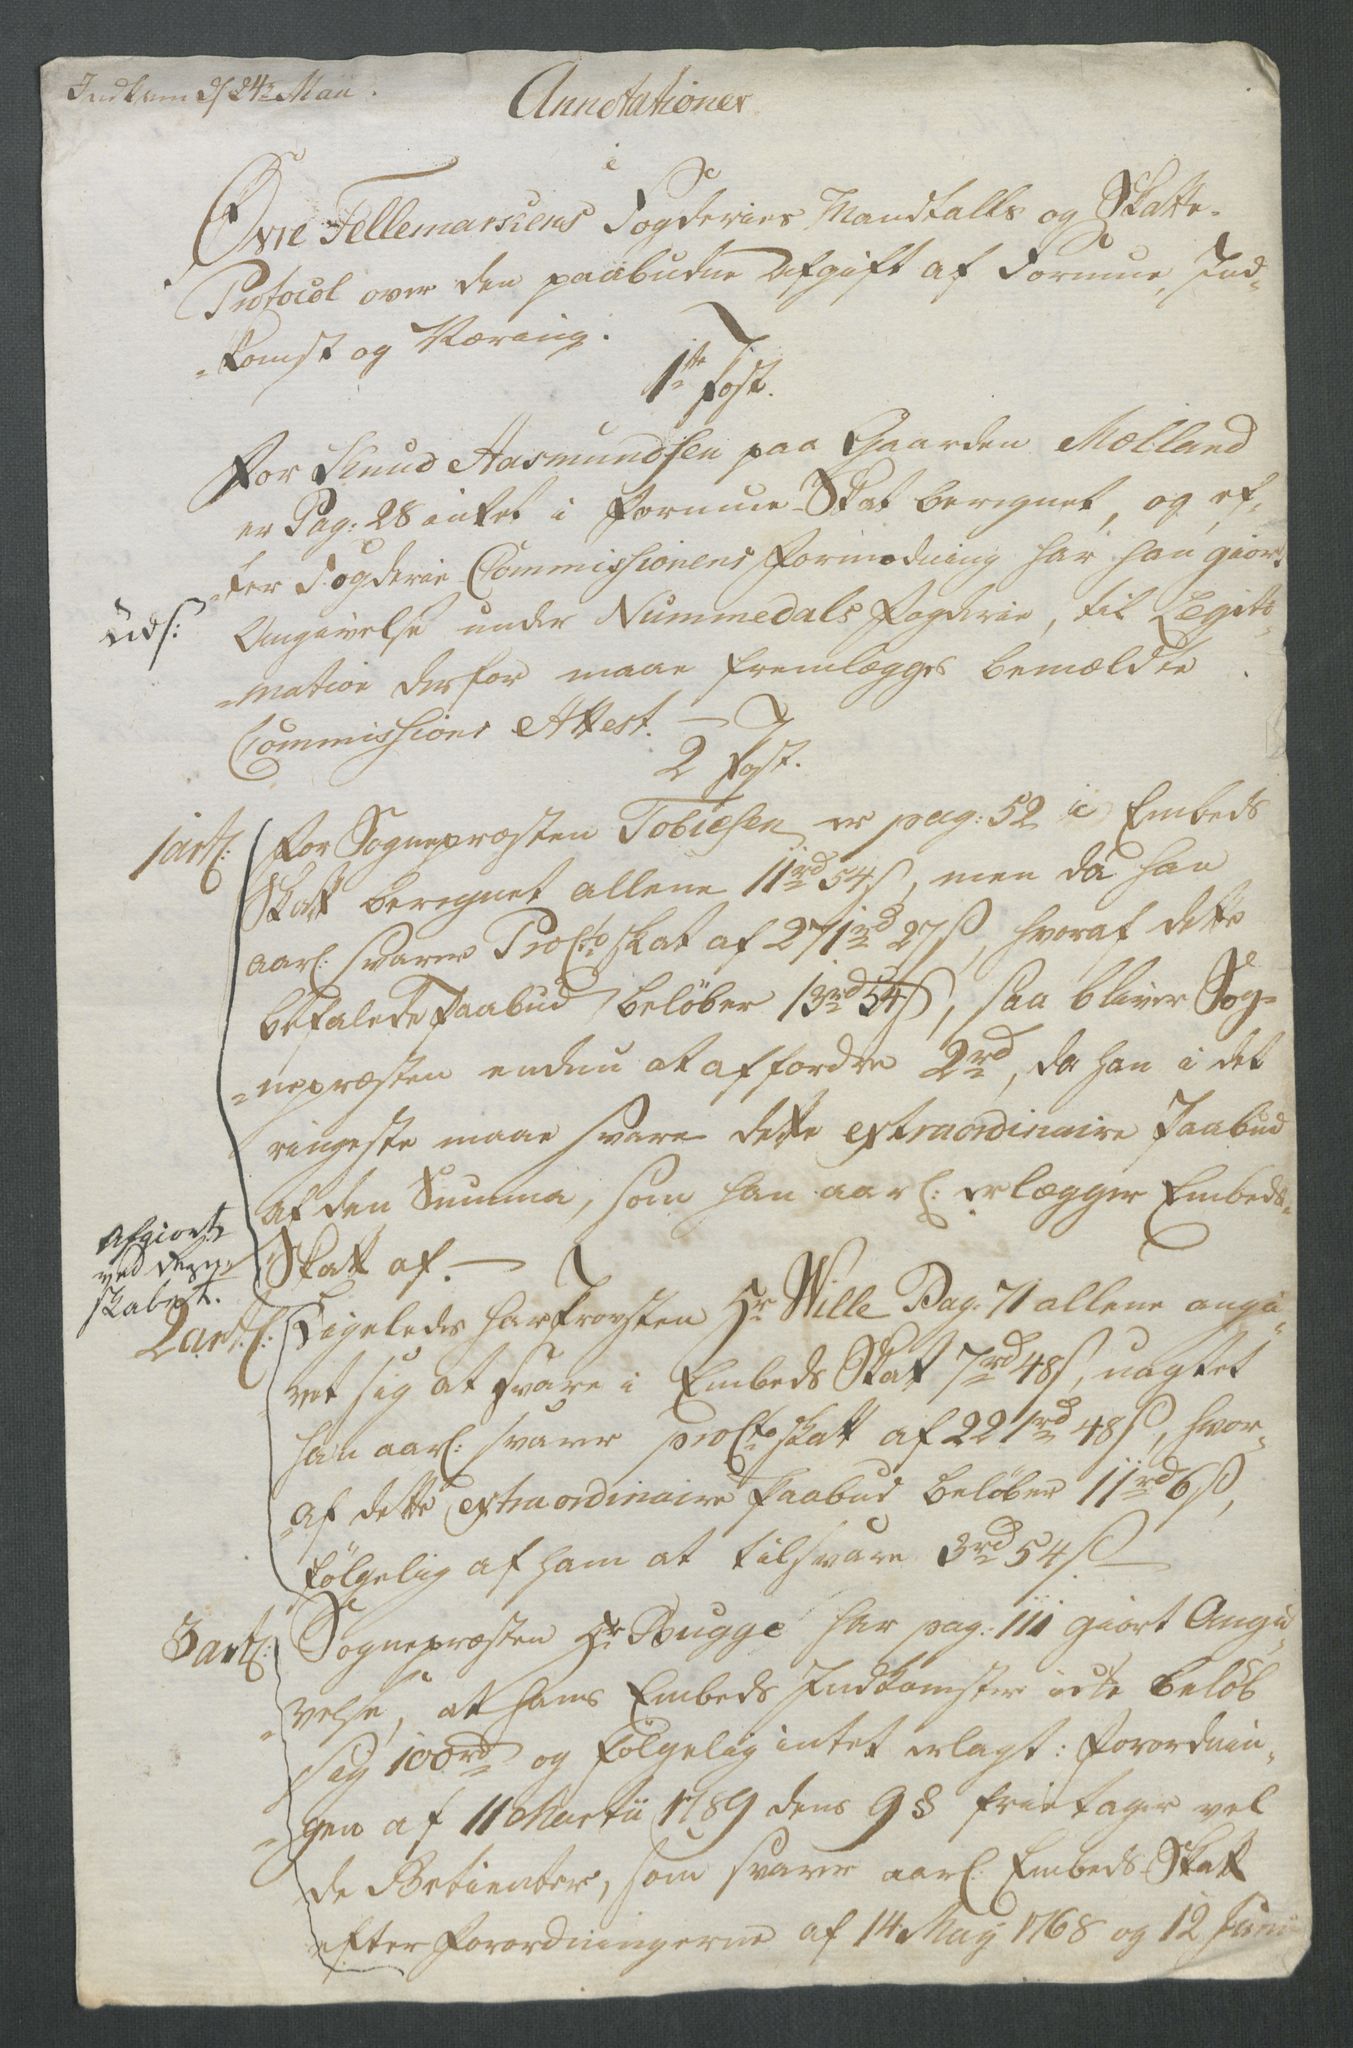 Indkom d. 24de Maii.
Annotationer
i
Øvre Tellemarkens Fogderies Mandtalls og Skatte-
Protocol over den paabudne Afgift af Formue, Ind-
komst og Næring.
1ste Post.
For Knud Aasmundsen paa Gaarden Mælland
er Pag: 28 intet i Formue-Skat beregnet, og ef-
ter Fogderie Commissionens Formodning har han giort
Angivelse under Nummedals Fogderie, til Legiti-
mation derfor maae fremlægges bemældte
Commissions Attest.
Uds:
2 Post.
1 art:
For Sognepræsten Tobiesen er pag: 52 i Embeds
Skatt beregnet allene 11rd 54s, men da han
aarl: svarer Procto skat af 271rd 27s, hvoraf dette
befalede Paabud beløber 13rd 54s, saa bliver Sog-
nepræsten endnu at affordre 2rd, da han i det
ringeste maae svare dette extraordinaire Paabud
af den Summa, som han aarl: erlægger Embeds-
Skatt af.
Afgiort
ved Regn-
skabet.
2 art:
Ligeledes har Provsten Hr Wille Pag: 71 allene angi-
vet sig at svare i Embeds Skat 7rd 48s, uagtet
han aarl: svarer procto skatt af 221rd 48s, hvor-
af dette extraordinaire Paabud beløber 11rd 6s,
følgelig af ham at tilsvare 3rd 54s
3 art:
Sognepræsten Hr Bugge har pag: 111 giort Angi-
velse, at hans Embeds Indkomster icke beløb
sig 100rd og følgelig intet erlagt: Forordnin-
gen af 11 Martii 1789 dens 9 § fritager vel
de Betienter, som svarer aarl: Embeds-Skatt
efter Forordningerne af 14 May 1768 og 12 Junii